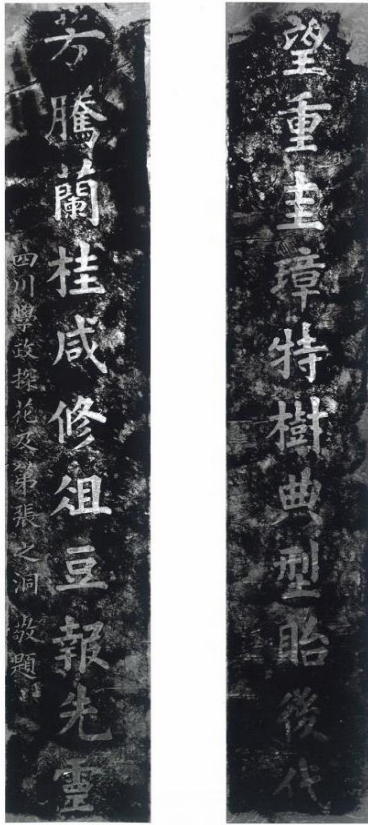 望重圭璋特樹典型眙後代
芳騰蘭桂咸修俎豆報先靈
四川學政探花及第張之洞敬題